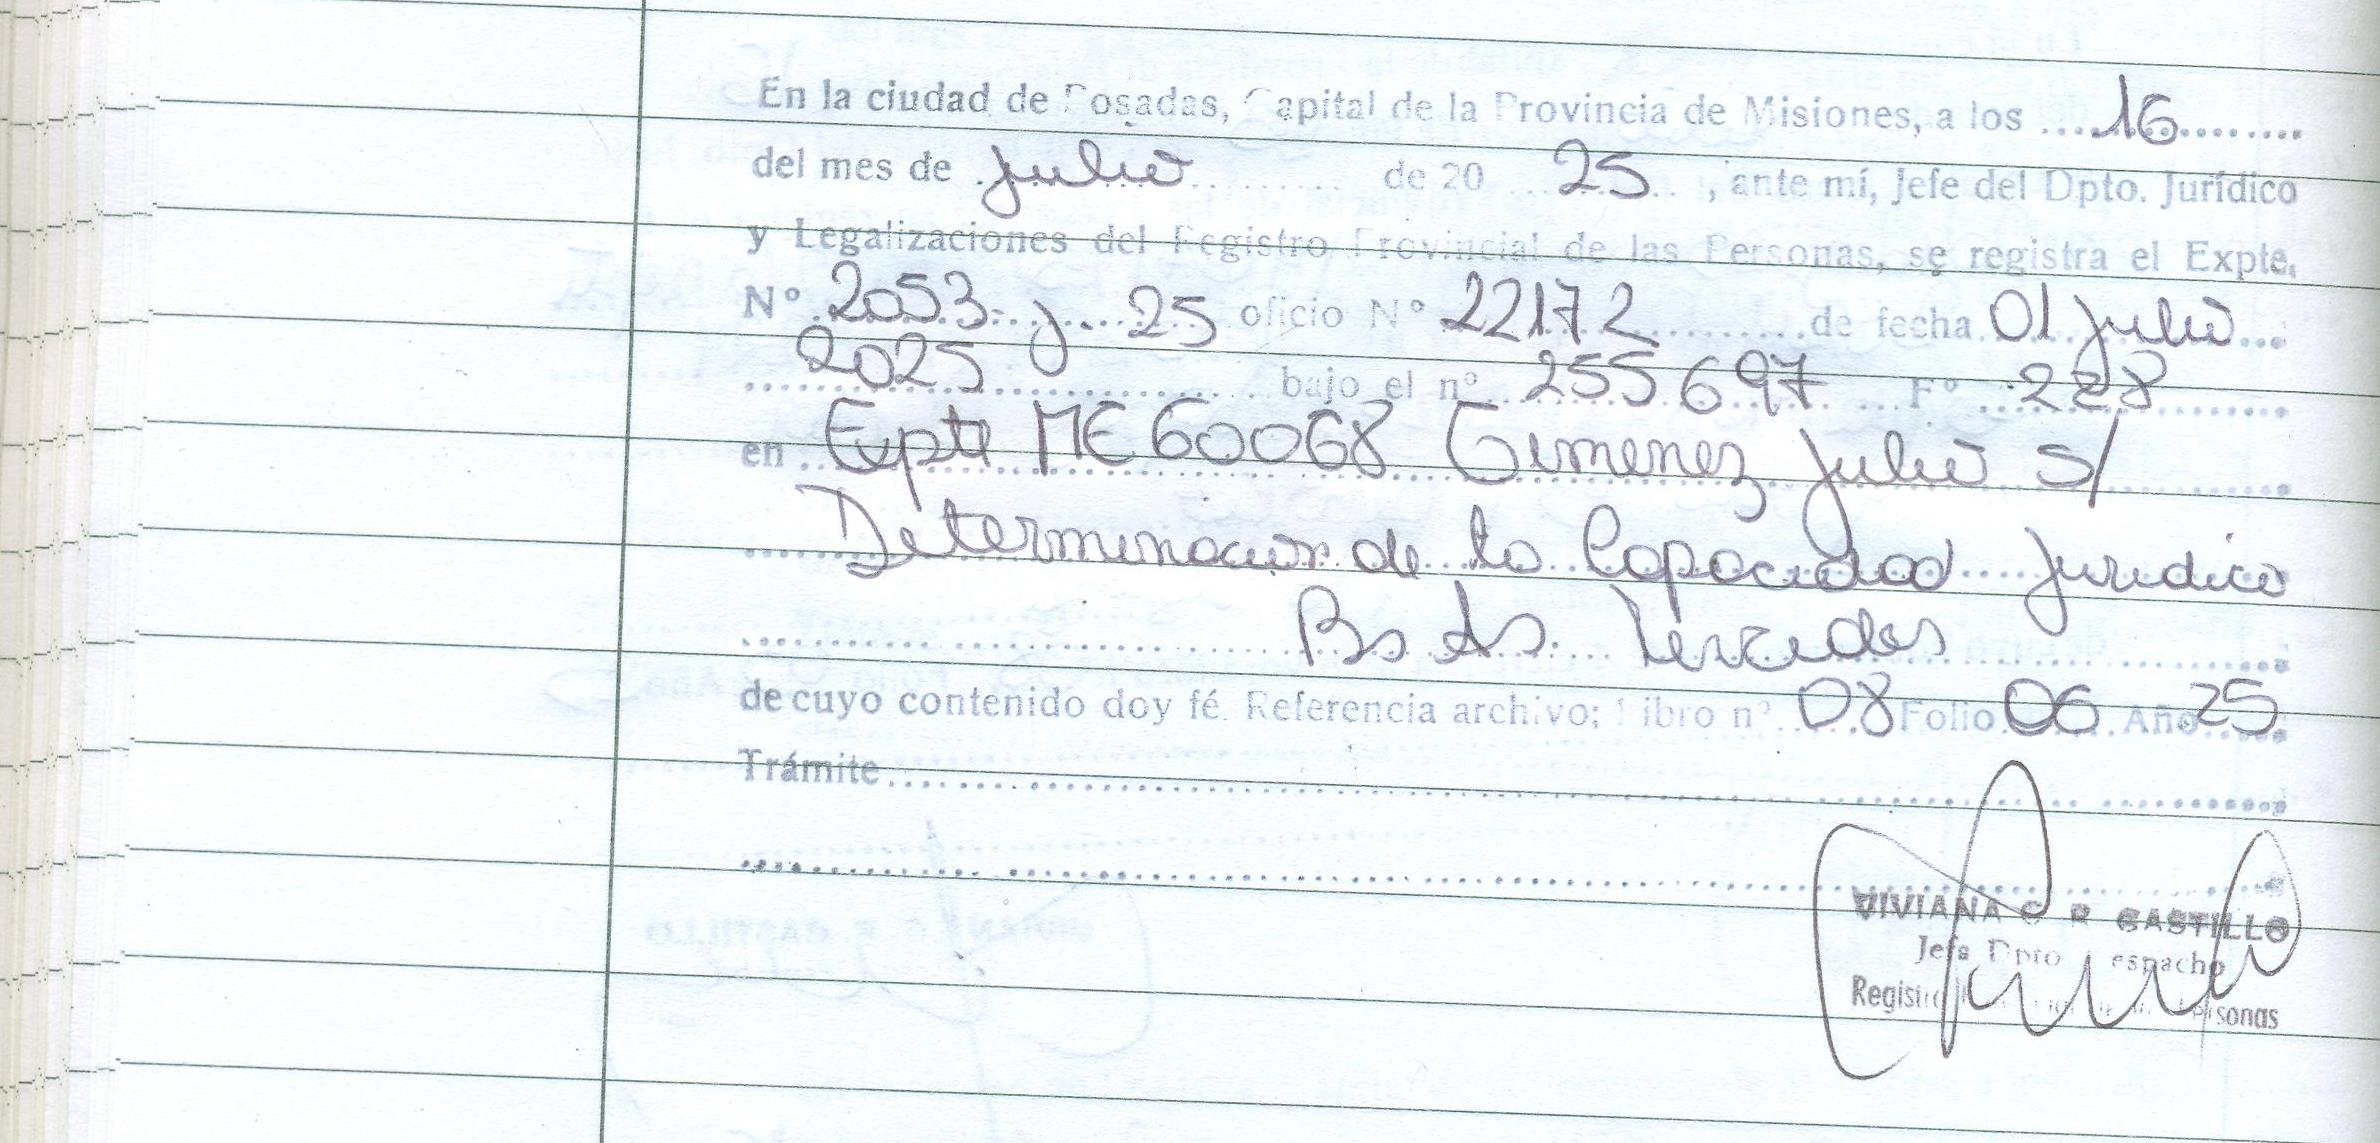 En la ciudad de Posadas, Capital de la Provincia de Misiones, a los 16
del mes de Julio de 20 25, ante mí, Jefe del Dpto. Jurídico
y Legalizaciones del Registro Provincial de las Personas, se registra el Expte.
N° 2053-J-25 oficio N° 22172 de fecha 01 Julio
2025 bajo el n° 255697 F° 228
en Expte ME 60068 Gimenez Julio S/
Determinacion de la Capacidad Juridica
Bs As.
de cuyo contenido doy fé. Referencia archivo; Libro n° 08 Folio 06 Año 25
Trámite
VIVIANA C R CASTILLO
Jefa Dpto Despacho
Registro Personas